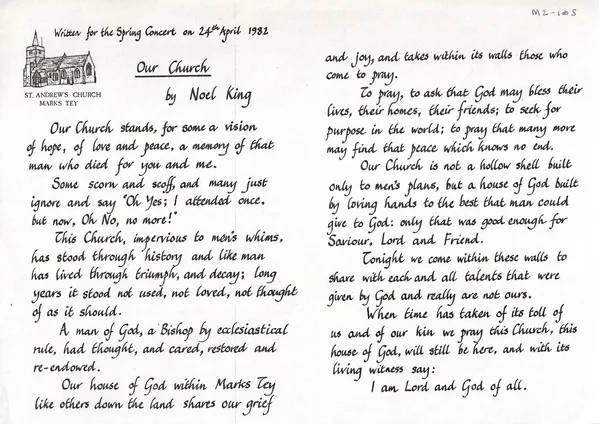 M2-105
Written for the Spring Concert on 24th April 1982
ST. ANDREW'S CHURCH
MARKS TEY
Our Church
by Noel King
Our Church stands, for some a vision
of hope, of love and peace, a memory of that
man who died for you and me.
Some scorn and scoff, and many just
ignore and say "Oh Yes; I attended once,
but now, Oh No, no more!"
This Church, impervious to men's whims,
has stood through history and like man
has lived through triumph, and decay; long
years it stood not used, not loved, not thought
of as it should.
A man of God, a Bishop by ecclesiastical
rule, had thought, and cared, restored and
re-endowed.
Our house of God within Marks Tey
like others down the land shares our grief
and joy, and takes within its walls those who
come to pray.
To pray, to ask that God may bless their
lives, their homes, their friends; to seek for
purpose in the world; to pray that many more
may find that peace which knows no end.
Our Church is not a hollow shell built
only to men's plans, but a house of God built
by loving hands to the best that man could
give to God: only that was good enough for
Saviour, Lord and Friend.
Tonight we come within these walls to
share with each and all talents that were
given by God and really are not ours.
When time has taken of its toll of
us and of our kin we pray this Church, this
house of God, will still be here, and with its
living witness say:
I am Lord and God of all.